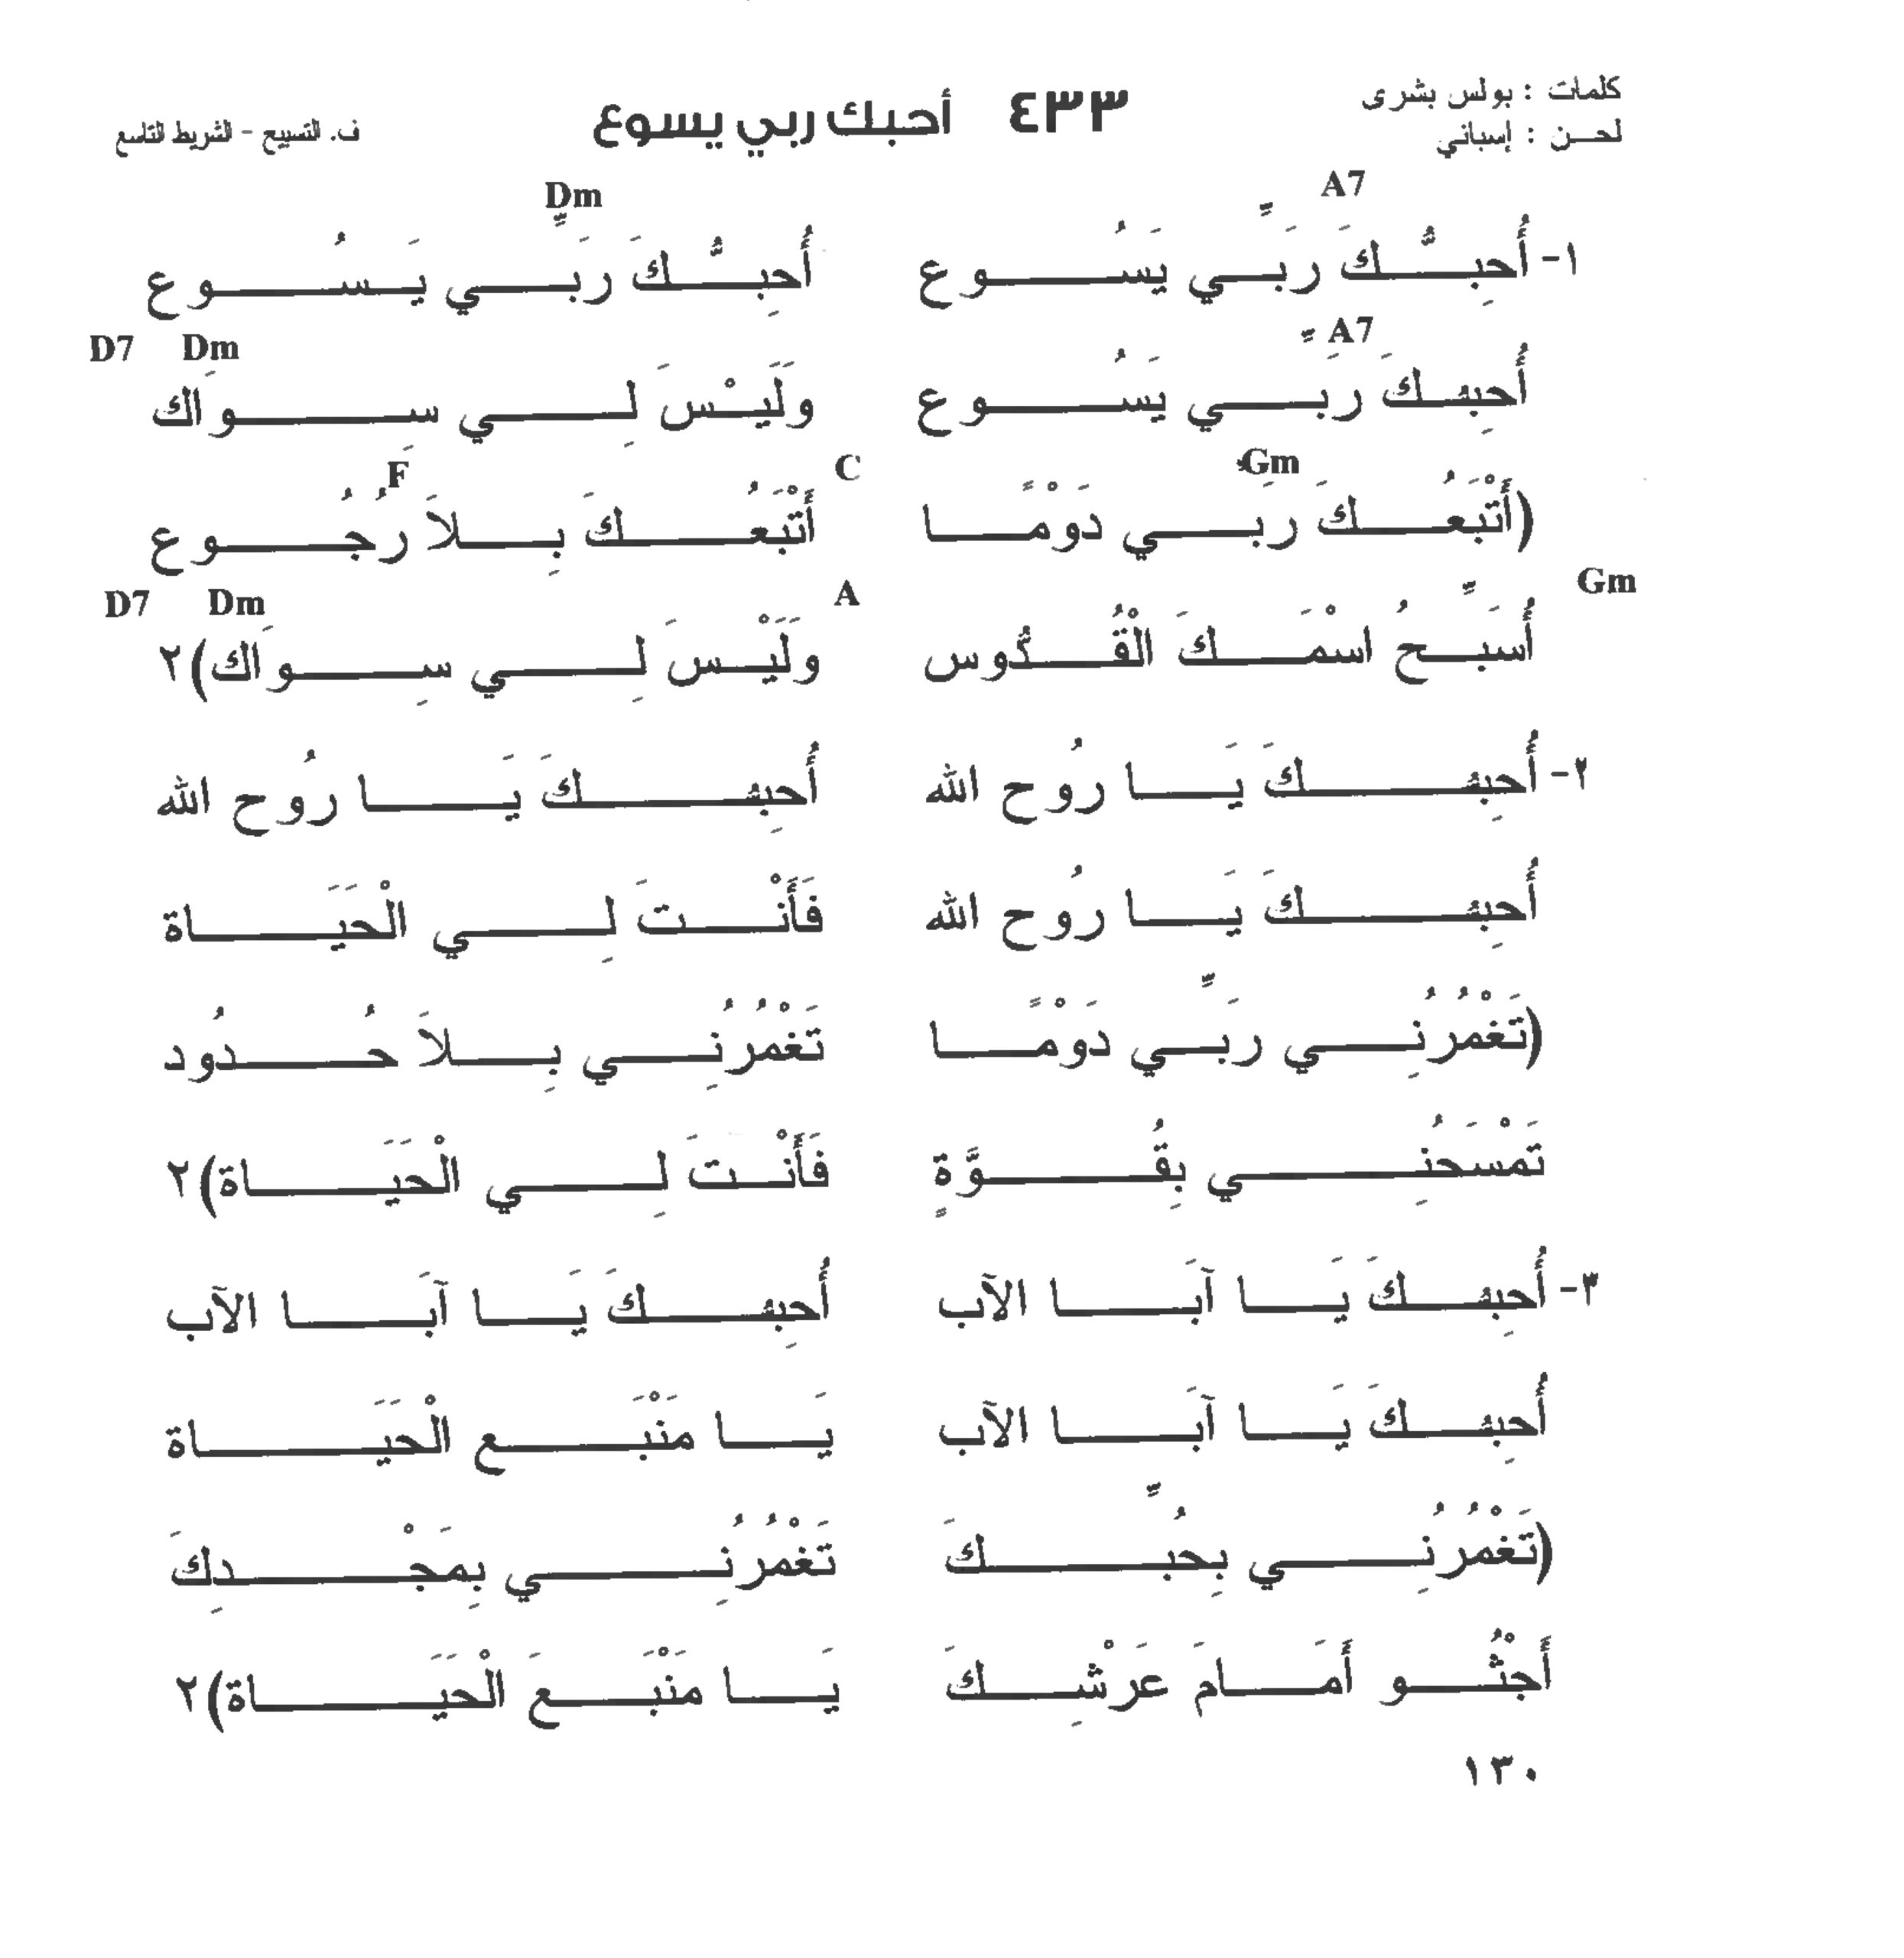 كلمات : بولس بشرى
٤٣٣ أحبك ربي يسوع
لحن : إسباني
ف. التسبيح - الشريط التاسع
A7 Dm
١- أُحِبُّكَ رَبِّي يَسُوع أُحِبُّكَ رَبِّي يَسُوع
A7 Dm D7
أُحِبُّكَ رَبِّي يَسُوع وَلَيْسَ لِي سِوَاك
Gm C F
(أَتْبَعُكَ رَبِّي دَوْمًا أَتْبَعُكَ بِلاَ رُجُوع
Gm A Dm D7
أُسَبِّحُ اسْمَكَ الْقُدُّوس وَلَيْسَ لِي سِوَاك)٢
٢- أُحِبُّكَ يَا رُوح الله أُحِبُّكَ يَا رُوح الله
أُحِبُّكَ يَا رُوح الله فَأَنْتَ لِي الْحَيَاة
(تَغْمُرُنِي رَبِّي دَوْمًا تَغْمُرُنِي بِلاَ حُدُود
تَمْسَحُنِي بِقُوَّةٍ فَأَنْتَ لِي الْحَيَاة)٢
٣- أُحِبُّكَ يَا آبَا الآب أُحِبُّكَ يَا آبَا الآب
أُحِبُّكَ يَا آبَا الآب يَا مَنْبَع الْحَيَاة
(تَغْمُرُنِي بِحُبِّكَ تَغْمُرُنِي بِمَجْدِكَ
أَجْثُو أَمَامَ عَرْشِكَ يَا مَنْبَعَ الْحَيَاة)٢
١٣٠